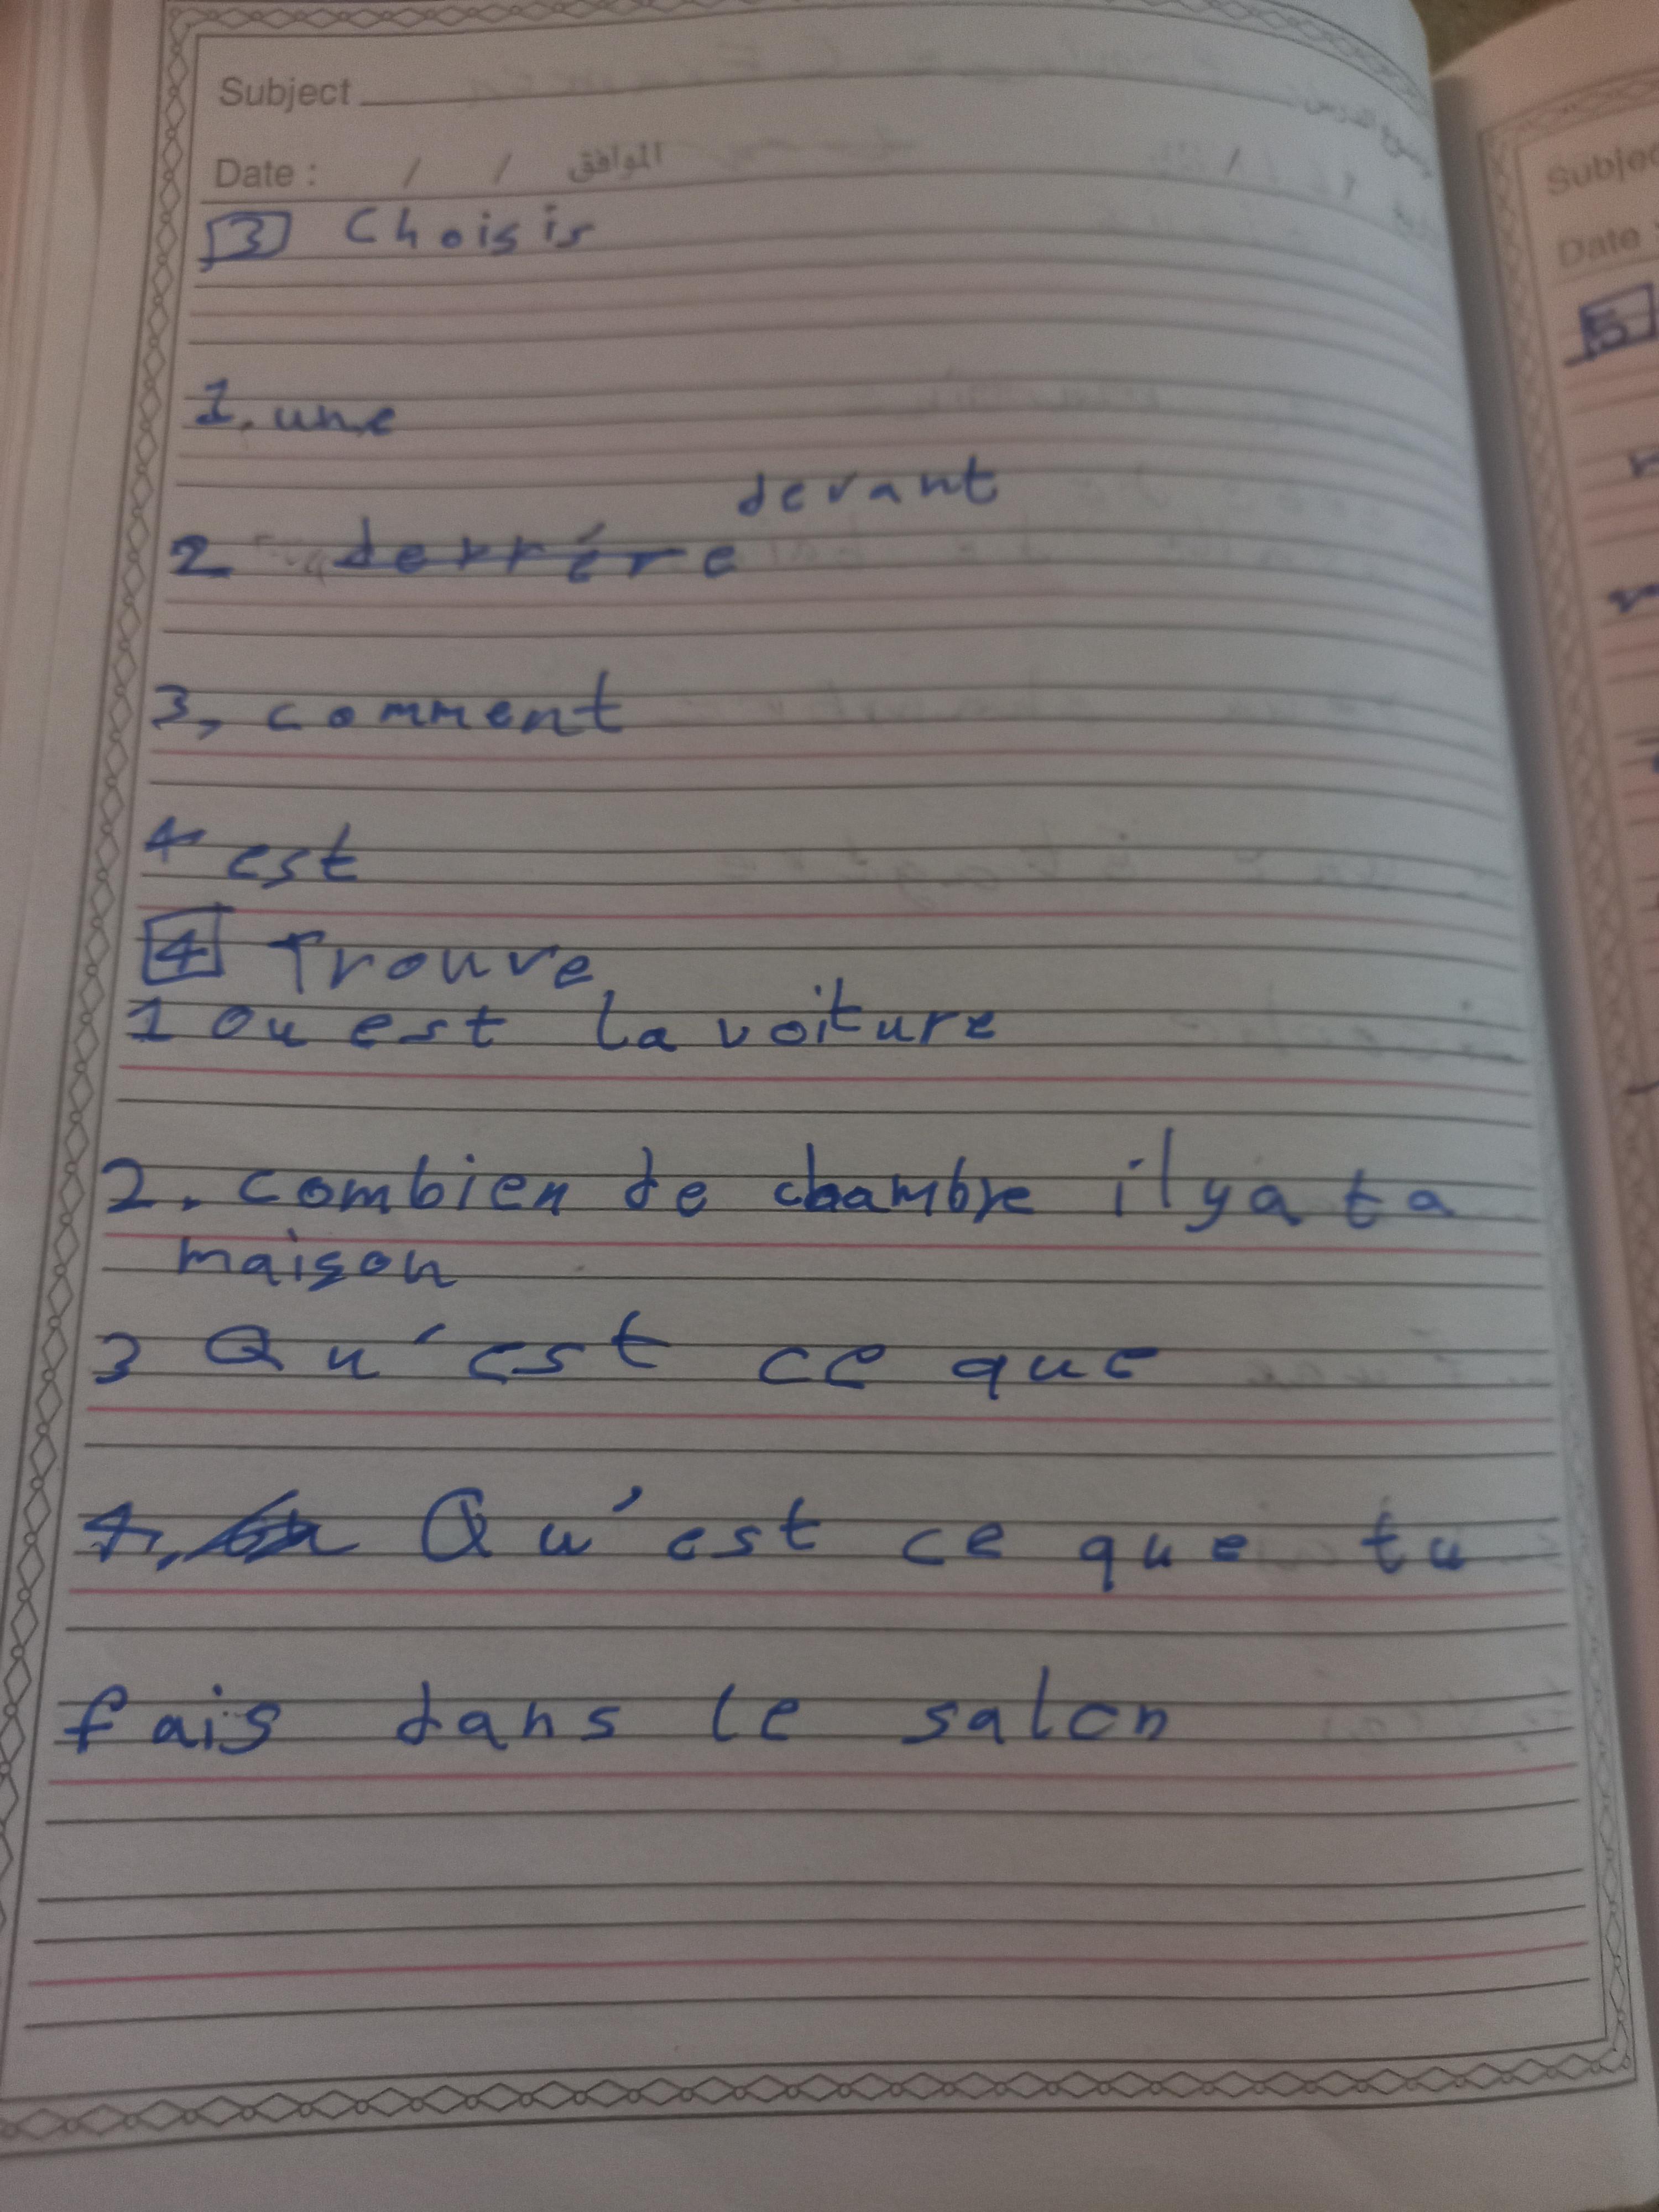 Subject
موضوع الدرس
Date : / / الموافق / /
3 Choisis
1. une
devant
2 derrére
3, comment
4 est
4 Trouve
1 Ou est la voiture
2. combien de chambre il y a ta
maison
3 Qu'est ce que
4, Qu'est ce que tu
fais dans le salon
Subjec
Date :
5